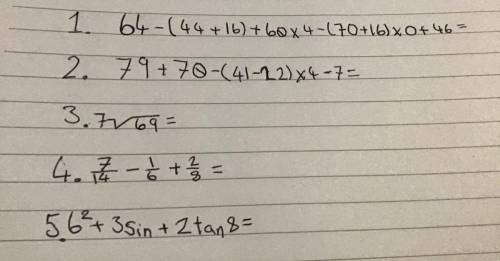 1. 64-(44+16)+60×4-(70+16)×0+46=
2. 79+70-(41-22)×4-7=
3. 7√69=
4. 7/14 - 1/6 + 2/8 =
5. 6²+3sin+2tan8=